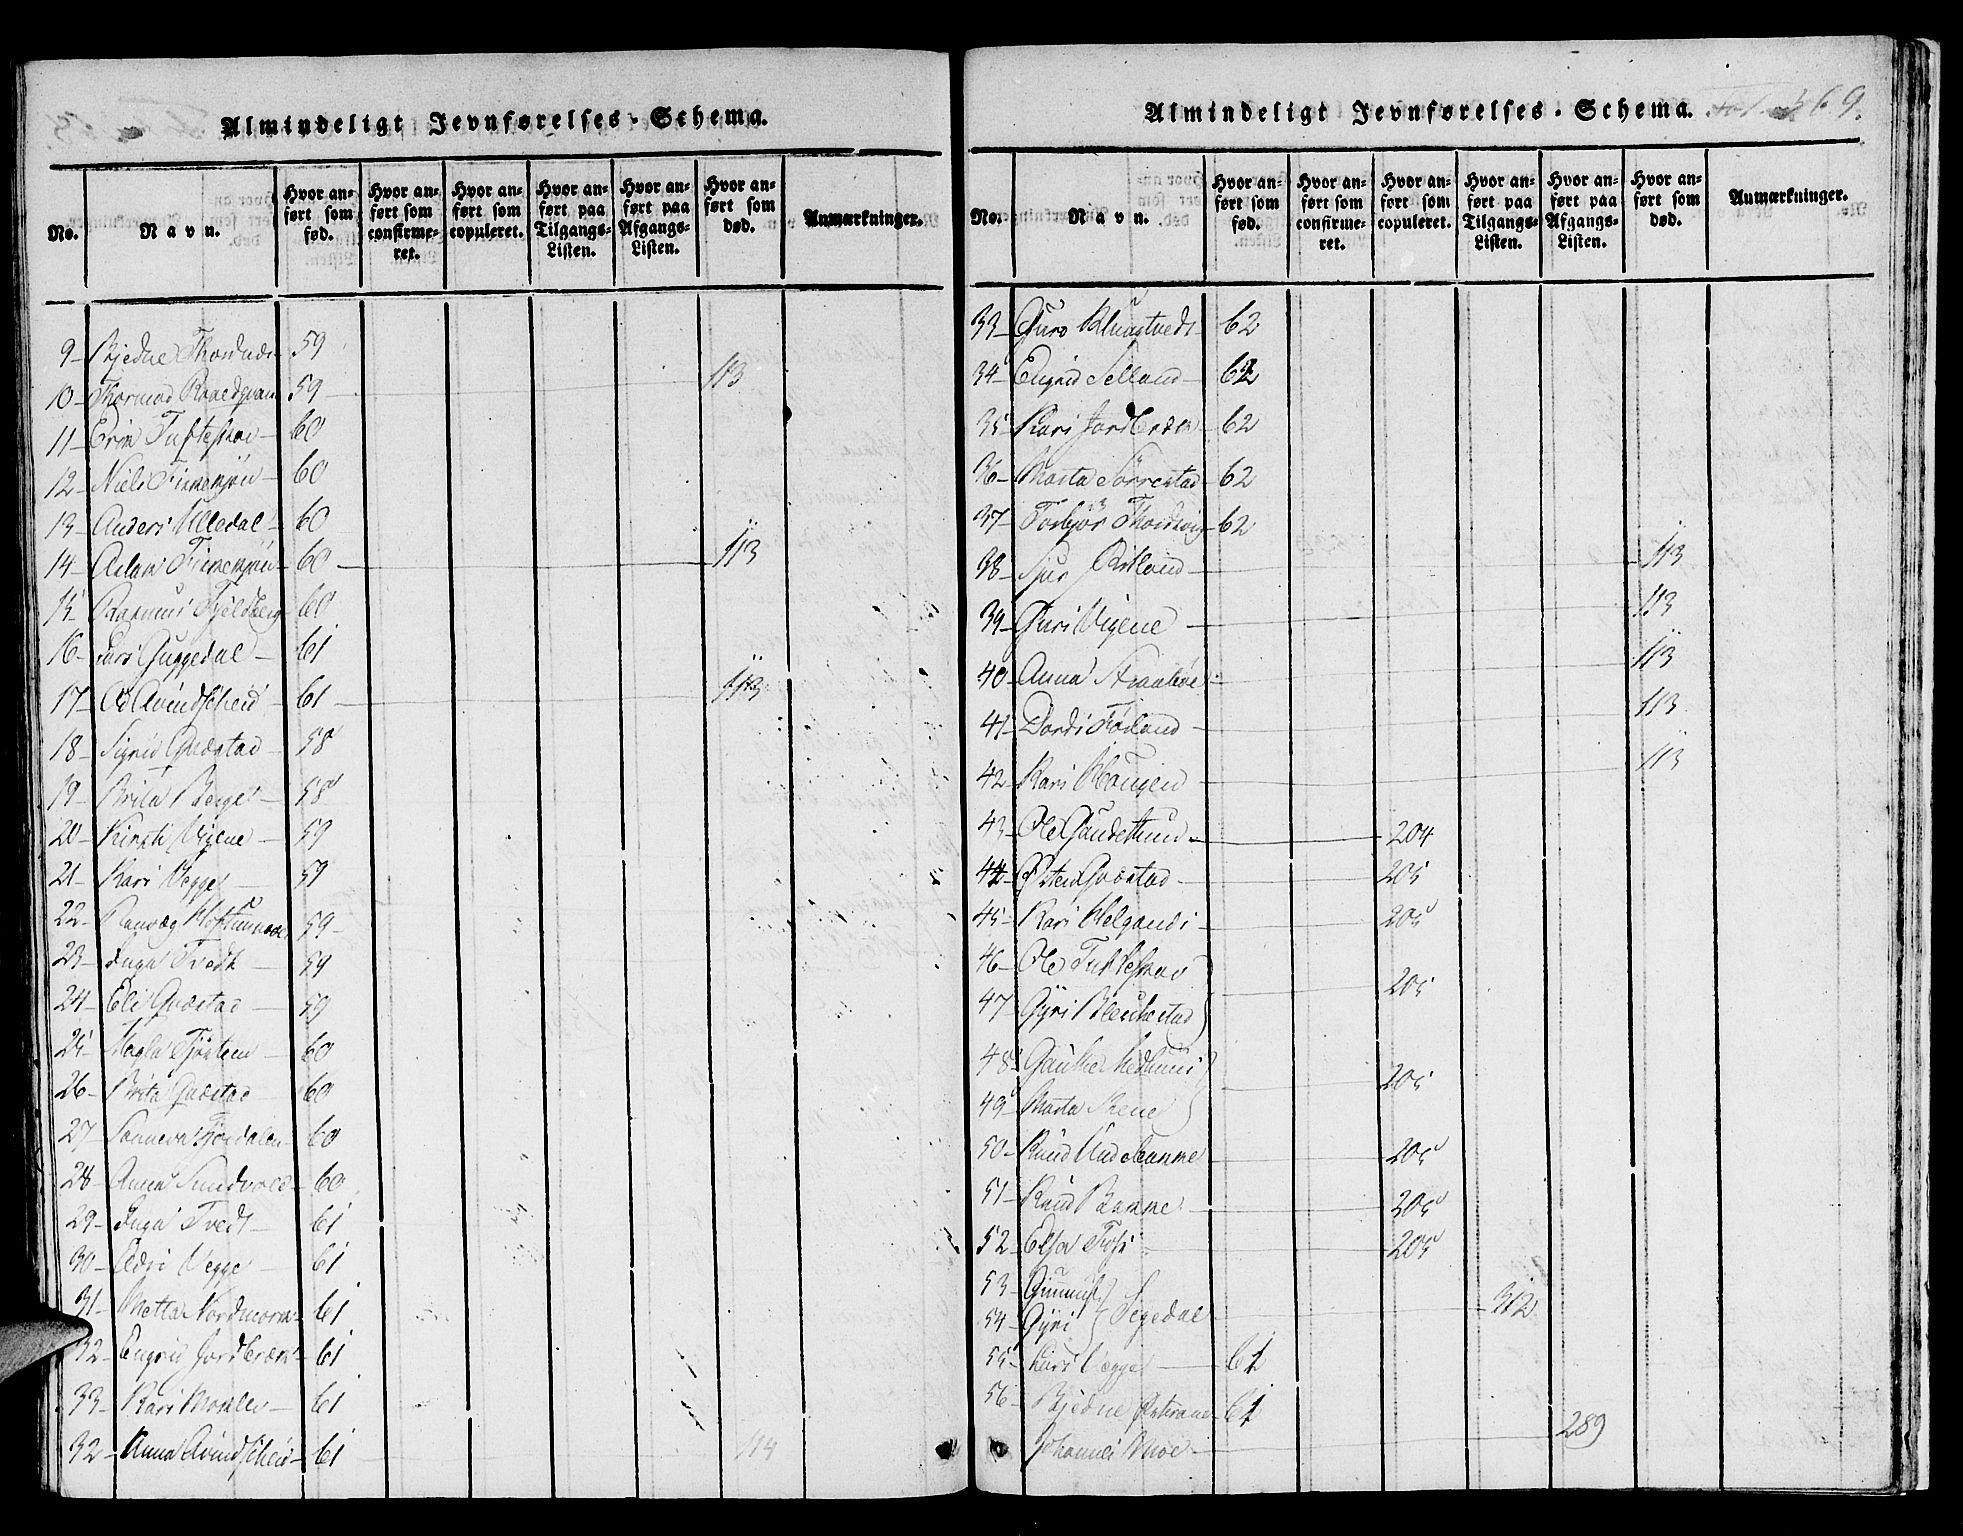 Almindeligt Jevnførelses-Schema.
No. Navn. Hvor anført som fød. Hvor anført som confirmeret. Hvor anført som copuleret. Hvor anført paa Tilgangs-Listen. Hvor anført paa Afgangs-Listen. Hvor anført som død. Anmærkninger.
9- Bjedne 59
10- Thormod 59 113
11- Erik Tufteskov- 60
12- Niels 60
13- Anders Ulledal- 60
14- Aslak 60 113
15- Rasmus Fjeldberg 60
16- Lars Guggedal- 61
17- Od Avindscheid 61 113
18- Sigrid Qvæstad 58
19- Brita Berge- 58
20- Kirsti Vigene- 59
21- Kari Vegge 59
22- Ranvæg 59-
23- Inga Tvedt 59
24- Eli Qvæstad 59
25- Magla 60
26- Brita Qvæstad 60
27- Sonneva 60
28- Anna Sundvoll- 60
29- Inga Tvedt- 61
30- Vegge 61
31- Metta Nordmork- 61
32- Engrid Jordbræk 61
33- Kari 61
32- Anna Avindscheid- 61 114
Almindeligt Jevnførelses-Schema.
369.
No. Navn. Hvor anført som fød. Hvor anført som confirmeret. Hvor anført som copuleret. Hvor anført paa Tilgangs-Listen. Hvor anført paa Afgangs-Listen. Hvor anført som død. Anmærkninger.
33- Guro 62
34- Engrid Selland- 62
35- Kari Jordbræk 62
36- Marta Sørrestad- 62
37- Torbjør 62
38- Sjur Østland- 113
39- Guri Vigene- 113
40- Anna 113
41- Dordi Fosland- 113
42- Kari Hougen 113
43- Ole 204
44- Østen Qvæstad- 205
45- Kari 205
46- Ole Tufteskov
47- Gyri 205
48- Gauther
49- Marta Skeue 205
50- Knud 205
51- Knud Bakke 205
52- Elsa 205
53- Gunnild
54- Gyri Segedal 312
55- Lars Vegge 61
56- Bjedne 61
Johannes Moe- 289